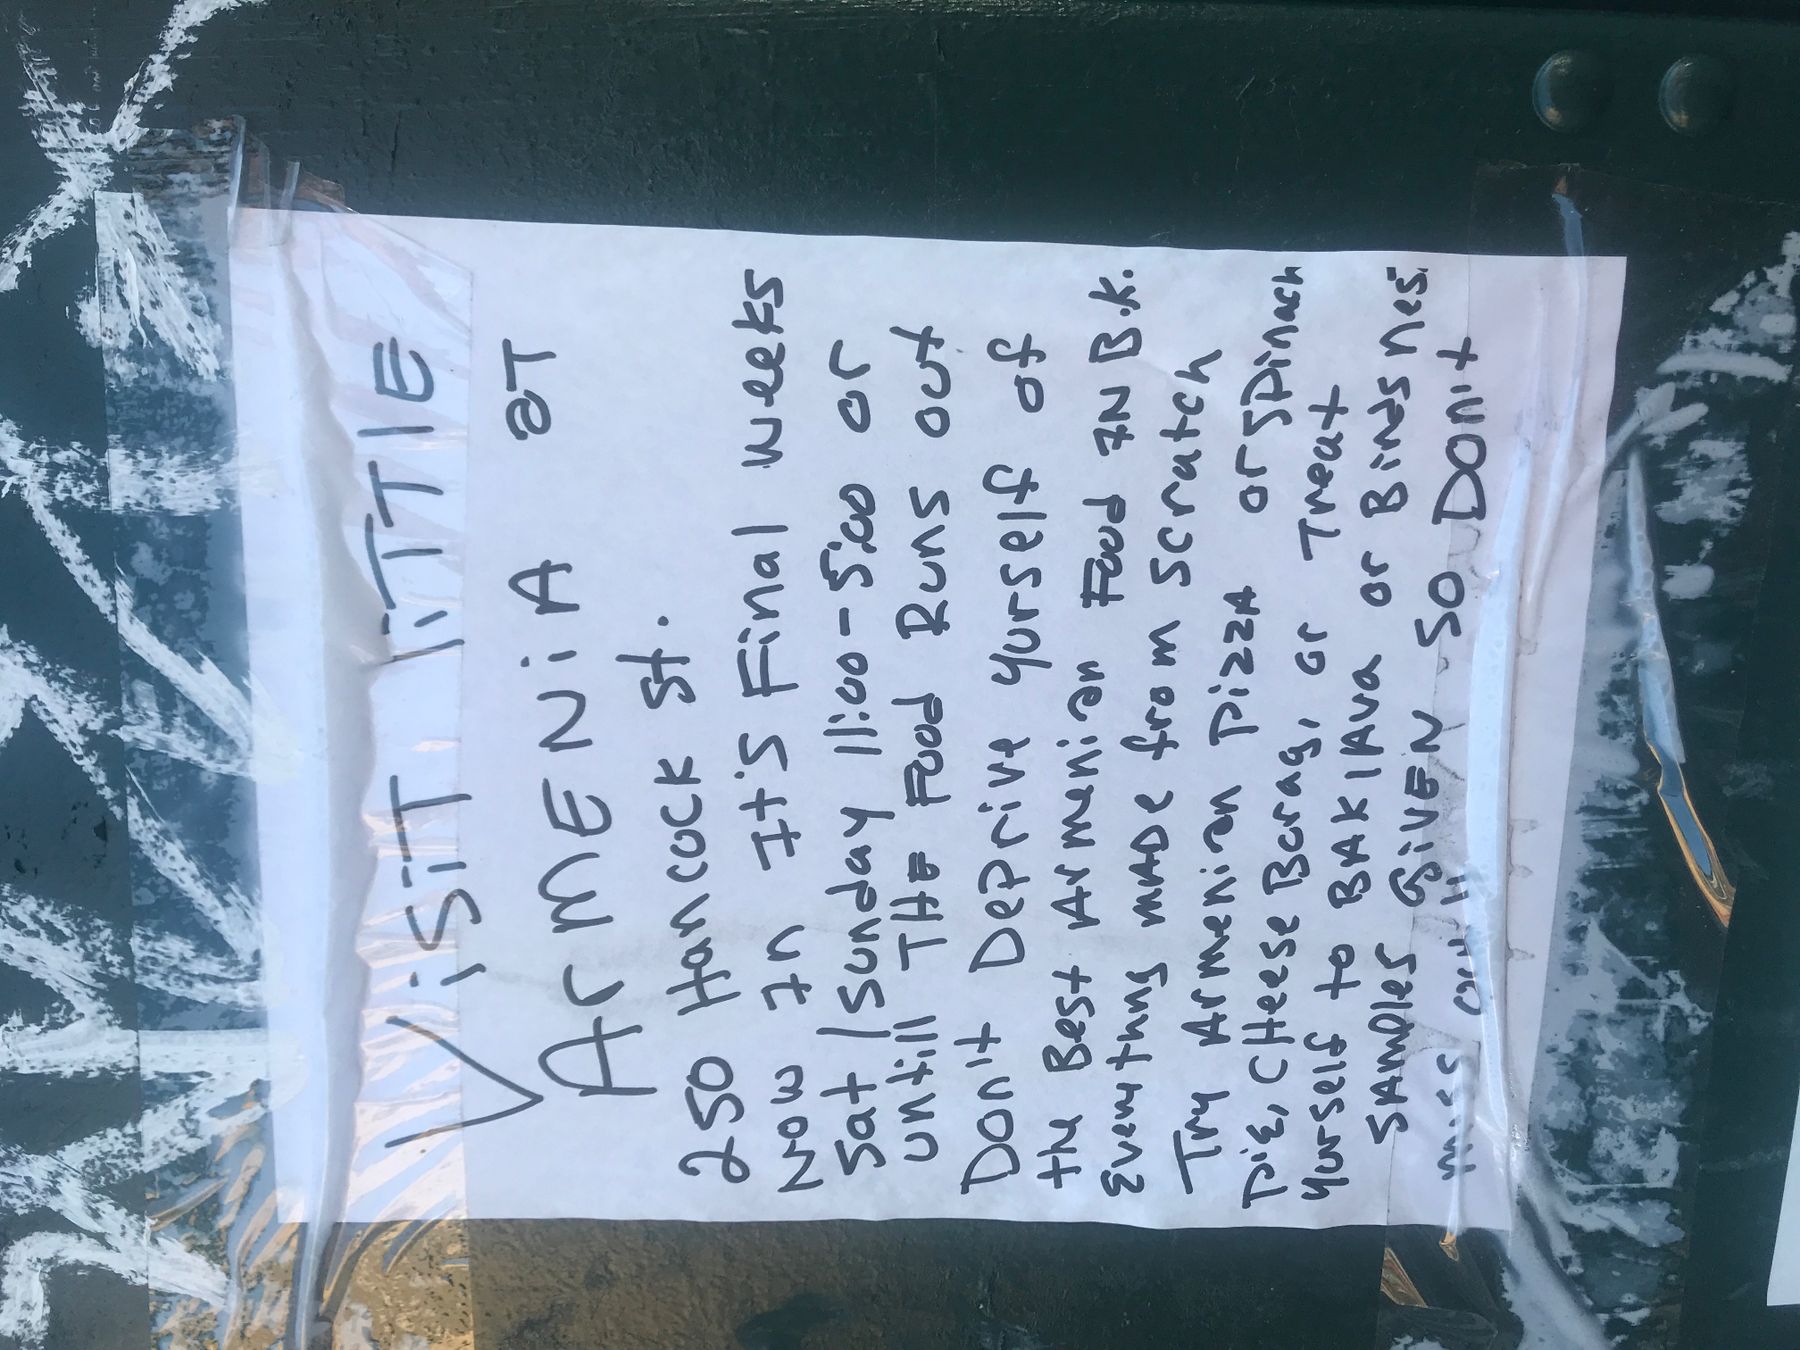 VISiT liTTlE
ArMENiA at
250 Hancock St.
Now In Its Final weeks
Sat/Sunday 11:00-5:00 or
untill THE Food Runs out
Don't Deprive yurself of
the Best Armenian Food IN B.K.
Everything MADe from Scratch
Try Armenian Pizza or Spinach
PiE, CHeese Borag, or Treat
yurself to BAKlAva or Birds nes.
SAMPles GiVEN SO DON't
miss out!!